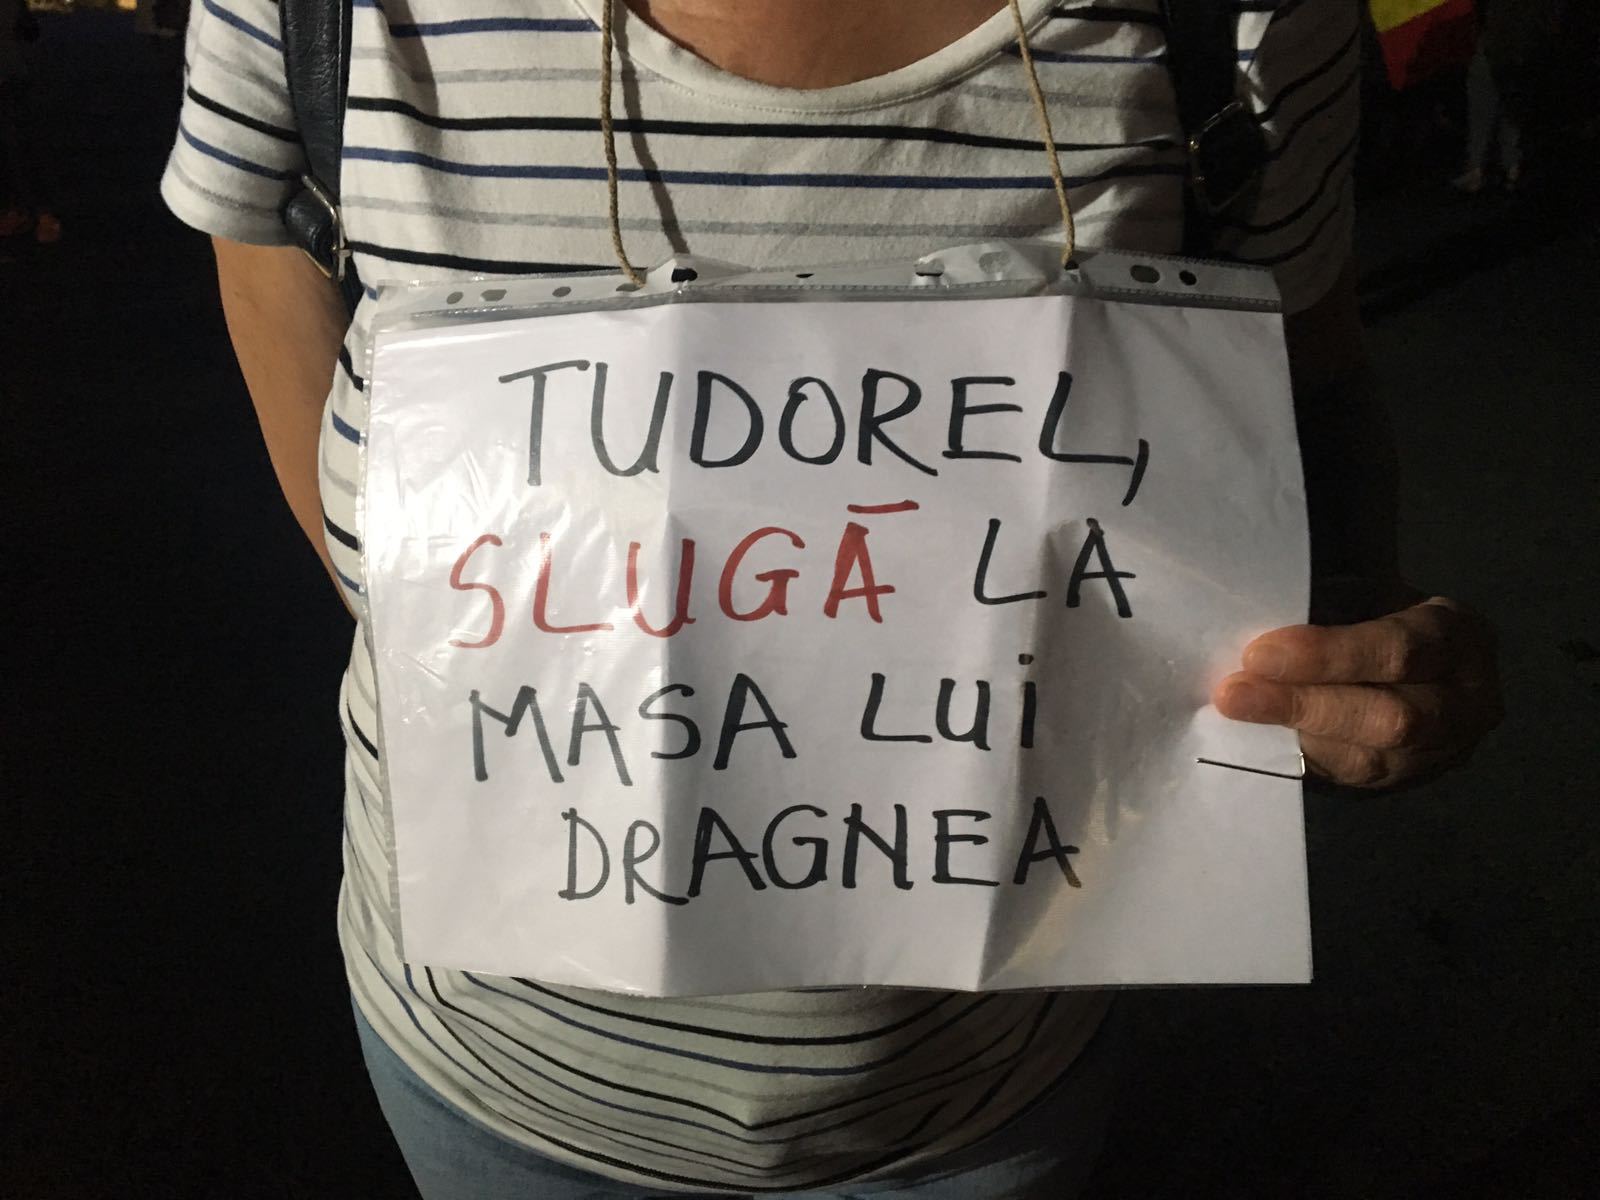 TUDOREL,
SLUGĀ LA
MASA LUi
DRAGNEA